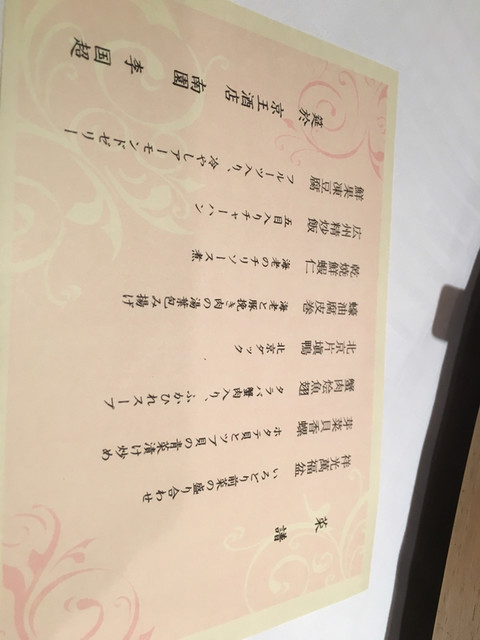 菜譜
祥光萬福盆
いろどり前菜の盛り合わせ
芽菜貝香螺
ホタテ貝とツブ貝の青菜漬け炒め
蟹肉燴魚翅
タラバ蟹肉入り、ふかひれスープ
北京片填鴨
北京ダック
蠔油腐皮巻
海老と豚挽き肉の湯葉包み揚げ
乾燒鮮蝦仁
海老のチリソース煮
広州精炒飯
五目入りチャーハン
鮮果凍豆腐
フルーツ入り 冷やしアーモンドゼリー
筵於
京王酒店
南園
李国超